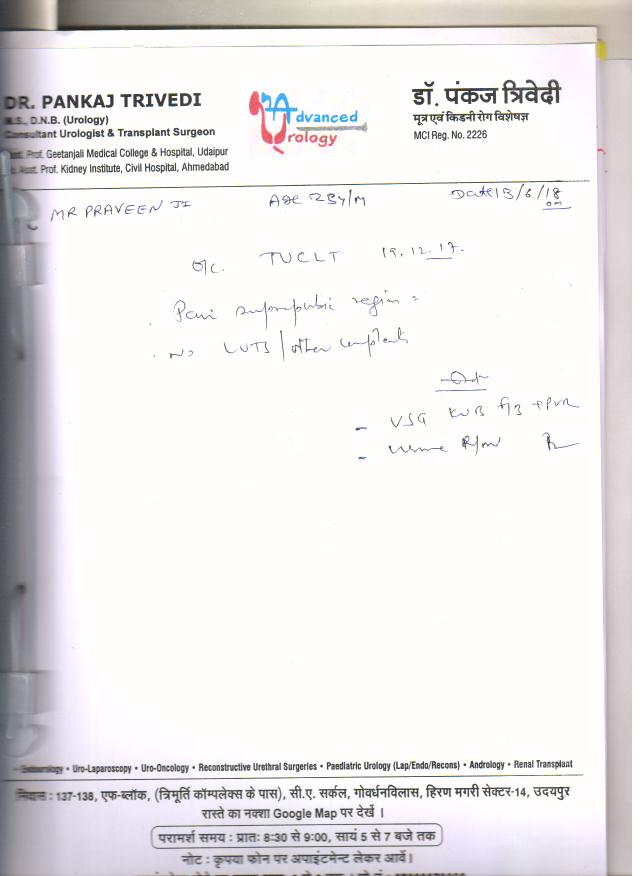 DR. PANKAJ TRIVEDI
M.S., D.N.B. (Urology)
Consultant Urologist & Transplant Surgeon
Prof. Geetanjali Medical College & Hospital, Udaipur
Asst. Prof. Kidney Institute, Civil Hospital, Ahmedabad
Advanced
Urology
डॉ. पंकज त्रिवेदी
मूत्र एवं किडनी रोग विशेषज्ञ
MCI Reg. No. 2226
MR PRAVEEN JI Age 28y/M Date 13/6/18
O/c. TUCLT 19.12.17.
Pain suprapubic region
no LUTS / other complaints
- USG KUB + PVR
- Urine R/m
Endourology • Uro-Laparoscopy • Uro-Oncology • Reconstructive Urethral Surgeries • Paediatric Urology (Lap/Endo/Recons) • Andrology • Renal Transplant
निवास : 137-138, एफ-ब्लॉक, (त्रिमूर्ति कॉम्पलेक्स के पास), सी.ए. सर्कल, गोवर्धनविलास, हिरण मगरी सेक्टर-14, उदयपुर
रास्ते का नक्शा Google Map पर देखें ।
परामर्श समय : प्रातः 8:30 से 9:00, सायं 5 से 7 बजे तक
नोट : कृपया फोन पर अपाइंटमेन्ट लेकर आवें।